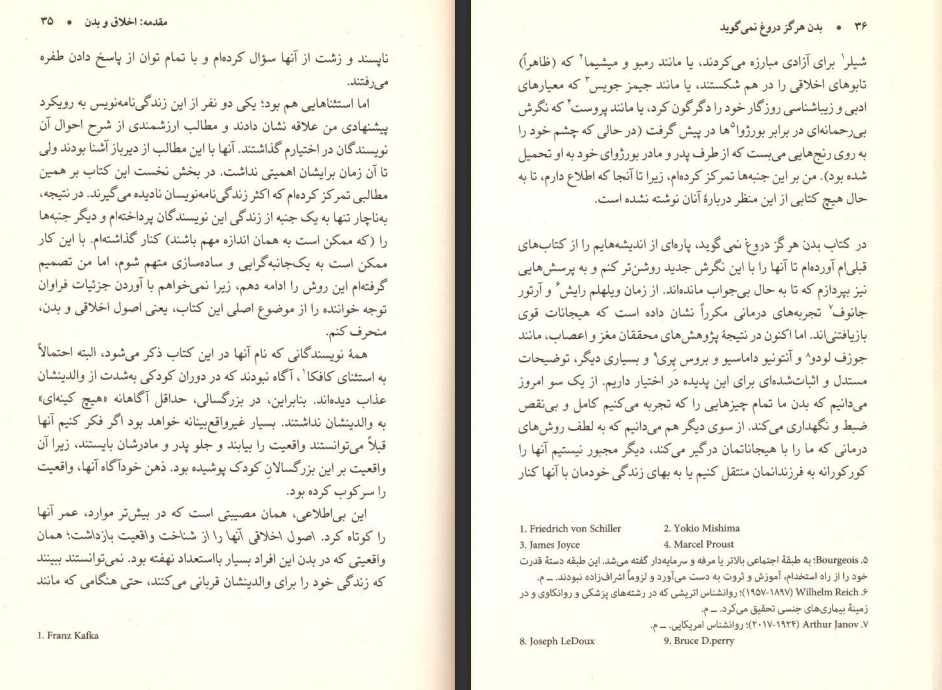 مقدمه: اخلاق و بدن • ۳۵
ناپسند و زشت از آنها سؤال کرده‌ام و با تمام توان از پاسخ دادن طفره
می‌رفتند.
اما استثناهایی هم بود؛ یکی دو نفر از این زندگی‌نامه‌نویس به رویکرد
پیشنهادی من علاقه نشان دادند و مطالب ارزشمندی از شرح احوال آن
نویسندگان در اختیارم گذاشتند. آنها با این مطالب از دیرباز آشنا بودند ولی
تا آن زمان برایشان اهمیتی نداشت. در بخش نخست این کتاب بر همین
مطالبی تمرکز کرده‌ام که اکثر زندگی‌نامه‌نویسان نادیده می‌گیرند. در نتیجه،
به‌ناچار تنها به یک جنبه از زندگی این نویسندگان پرداخته‌ام و دیگر جنبه‌ها
را (که ممکن است به همان اندازه مهم باشند) کنار گذاشته‌ام. با این کار
ممکن است به یک‌جانبه‌گرایی و ساده‌سازی متهم شوم، اما من تصمیم
گرفته‌ام این روش را ادامه دهم، زیرا نمی‌خواهم با آوردن جزئیات فراوان
توجه خواننده را از موضوع اصلی این کتاب، یعنی اصول اخلاقی و بدن،
منحرف کنم.
همهٔ نویسندگانی که نام آنها در این کتاب ذکر می‌شود، البته احتمالاً
به استثنای کافکا۱، آگاه نبودند که در دوران کودکی به‌شدت از والدینشان
عذاب دیده‌اند. بنابراین، در بزرگسالی، حداقل آگاهانه «هیچ کینه‌ای»
به والدینشان نداشتند. بسیار غیرواقع‌بینانه خواهد بود اگر فکر کنیم آنها
قبلاً می‌توانستند واقعیت را بیابند و جلو پدر و مادرشان بایستند، زیرا آن
واقعیت بر این بزرگسالانِ کودک پوشیده بود. ذهن خودآگاه آنها، واقعیت
را سرکوب کرده بود.
این بی‌اطلاعی، همان مصیبتی است که در بیش‌تر موارد، عمر آنها
را کوتاه کرد. اصول اخلاقی آنها را از شناخت واقعیت بازداشت؛ همان
واقعیتی که در بدن این افراد بسیار بااستعداد نهفته بود. نمی‌توانستند ببینند
که زندگی خود را برای والدینشان قربانی می‌کنند، حتی هنگامی که مانند
1. Franz Kafka
۳۶ • بدن هرگز دروغ نمی‌گوید
شیلر۱ برای آزادی مبارزه می‌کردند، یا مانند رمبو و میشیما۲ که (ظاهراً)
تابوهای اخلاقی را در هم شکستند، یا مانند جیمز جویس۳ که معیارهای
ادبی و زیباشناسی روزگار خود را دگرگون کرد، یا مانند پروست۴ که نگرش
بی‌رحمانه‌ای در برابر بورژوا۵ها در پیش گرفت (در حالی که چشم خود را
به روی رنج‌هایی می‌بست که از طرف پدر و مادر بورژوای خود به او تحمیل
شده بود). من بر این جنبه‌ها تمرکز کرده‌ام، زیرا تا آنجا که اطلاع دارم، تا به
حال هیچ کتابی از این منظر دربارهٔ آنان نوشته نشده است.
در کتاب بدن هرگز دروغ نمی‌گوید، پاره‌ای از اندیشه‌هایم را از کتاب‌های
قبلی‌ام آورده‌ام تا آنها را با این نگرش جدید روشن‌تر کنم و به پرسش‌هایی
نیز بپردازم که تا به حال بی‌جواب مانده‌اند. از زمان ویلهلم رایش۶ و آرتور
جانوف۷ تجربه‌های درمانی مکرراً نشان داده است که هیجانات قوی
بازیافتنی‌اند. اما اکنون در نتیجهٔ پژوهش‌های محققان مغز و اعصاب، مانند
جوزف لودو۸ و آنتونیو داماسیو و بروس پِری۹ و بسیاری دیگر، توضیحات
مستدل و اثبات‌شده‌ای برای این پدیده در اختیار داریم. از یک سو امروز
می‌دانیم که بدن ما تمام چیزهایی را که تجربه می‌کنیم کامل و بی‌نقص
ضبط و نگهداری می‌کند. از سوی دیگر هم می‌دانیم که به لطف روش‌های
درمانی که ما را با هیجاناتمان درگیر می‌کند، دیگر مجبور نیستیم آنها را
کورکورانه به فرزندانمان منتقل کنیم یا به بهای زندگی خودمان با آنها کنار
1. Friedrich von Schiller 2. Yokio Mishima
3. James Joyce 4. Marcel Proust
۵. Bourgeois؛ به طبقهٔ اجتماعی بالاتر یا مرفه و سرمایه‌دار گفته می‌شد. این طبقه دستهٔ قدرت
خود را از راه استخدام، آموزش و ثروت به دست می‌آورد و لزوماً اشراف‌زاده نبودند. ــ م.
۶. Wilhelm Reich (۱۸۹۷-۱۹۵۷)؛ روانشناس اتریشی که در رشته‌های پزشکی و روانکاوی و در
زمینهٔ بیماری‌های جنسی تحقیق می‌کرد. ــ م.
۷. Arthur Janov (۱۹۲۴-۲۰۱۷)؛ روانشناس امریکایی. ــ م.
8. Joseph LeDoux 9. Bruce D.perry